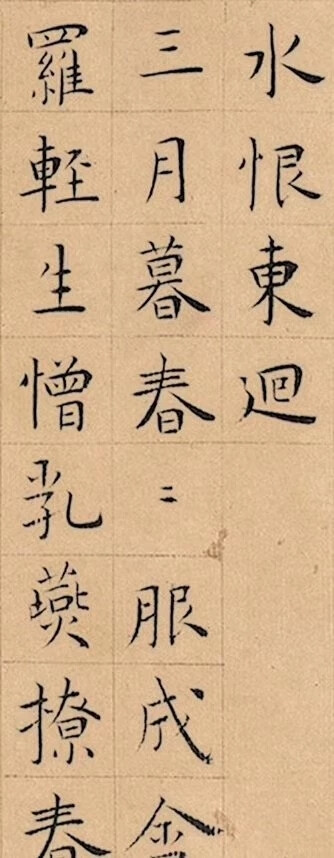 水恨東迴
三月暮春〻服成金
羅輕生憎乳燕撩春